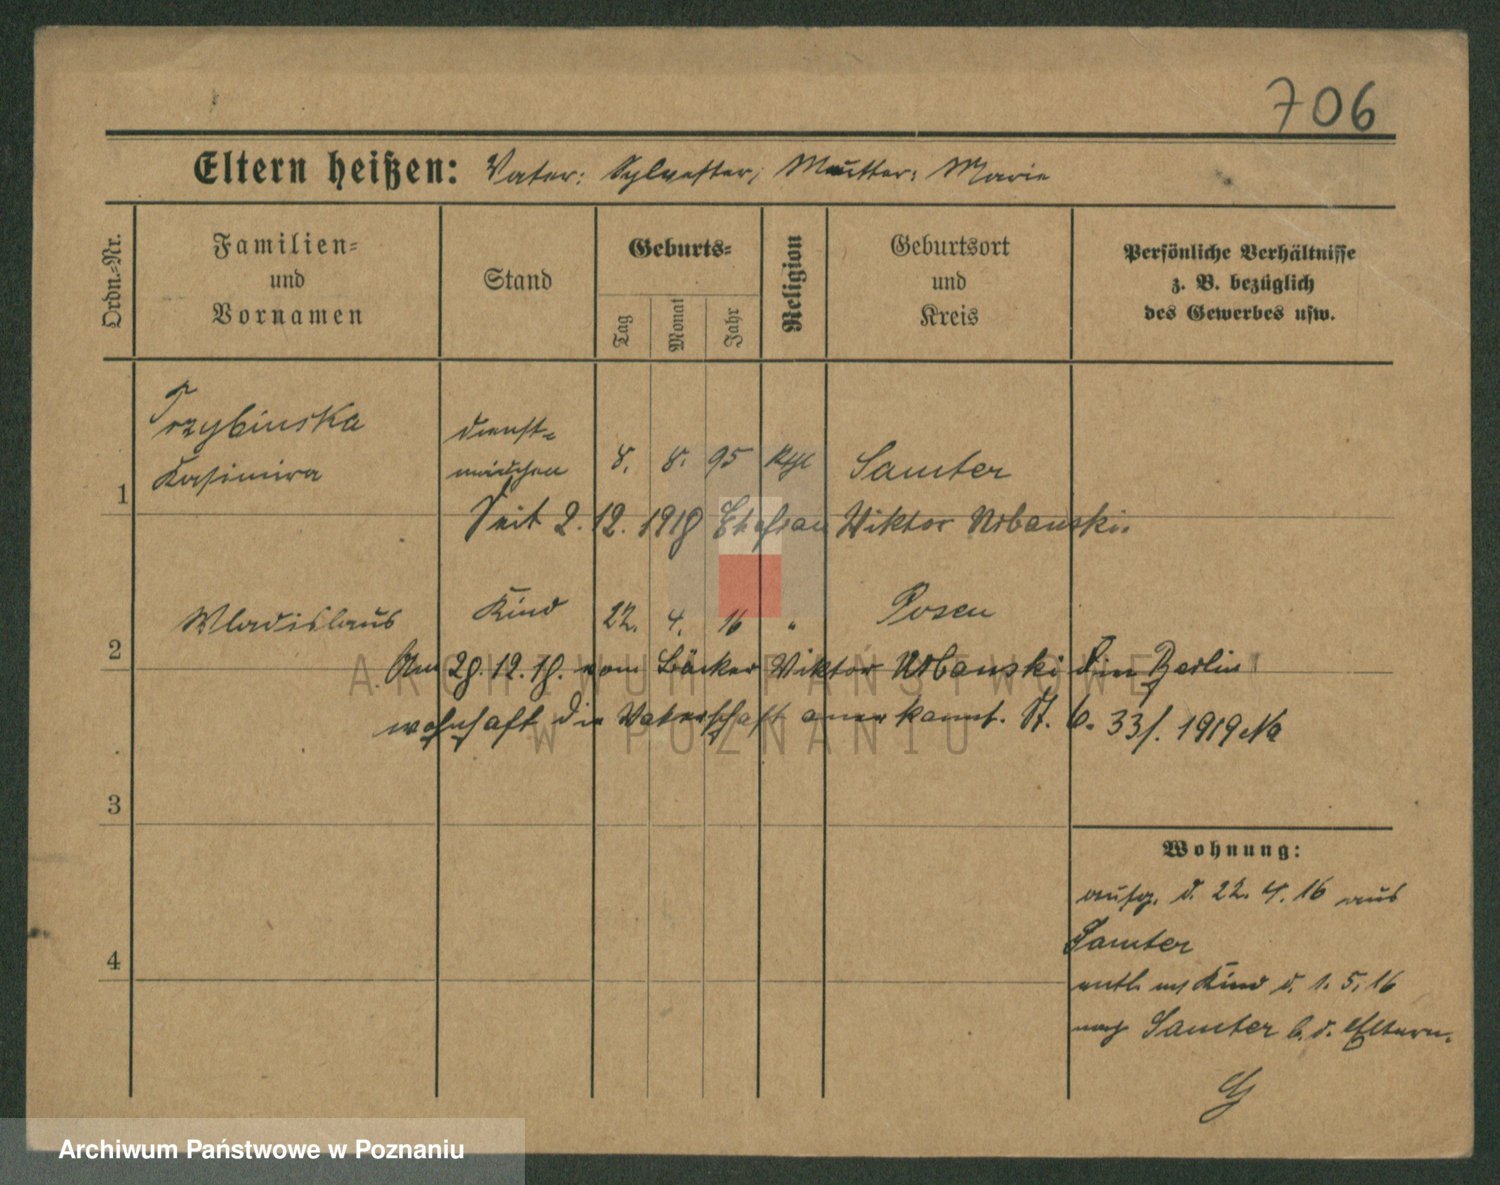 706
Eltern heißen: Vater: Sylvester; Mutter: Marie
Ordn.-Nr.
Familien-
und
Vornamen
Stand
Geburts-
Tag
Monat
Jahr
Religion
Geburtsort
und
Kreis
Persönliche Verhältnisse
z. B. bezüglich
des Gewerbes usw.
1
Trzybinska
Kasimira
Dienst-
mädchen
8. 8. 95 Kth
Samter
Seit 2. 12. 1918 Ehefrau Viktor Urbanski.
2
Wladislaus
Kind
22. 4. 16 "
Posen
Am 28. 12. 18. vom Bäcker Viktor Urbanski in Berlin
wohnhaft die Vaterschaft anerkannt. St. 6. 33/. 1919
3
4
Wohnung:
aufg. d. 22. 4. 16 aus
Samter
entl. m Kind d. 1. 5. 16
nach Samter b. d. Eltern.
ARCHIWUM PAŃSTWOWE
W POZNANIU
Archiwum Państwowe w Poznaniu